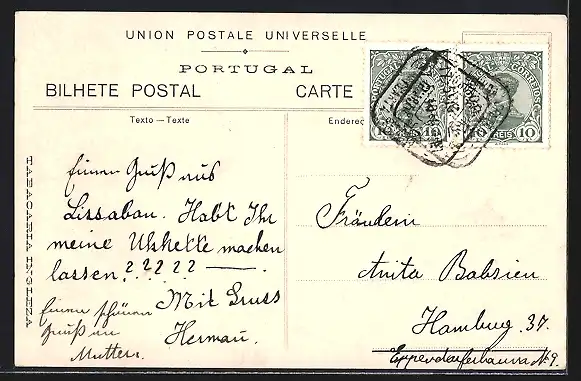 UNION POSTALE UNIVERSELLE
PORTUGAL
BILHETE POSTAL CARTE
Texto — Texte
Endereç
CORREIOS
10 REIS 10
TABACARIA INGLEZA
Einen Gruß aus
Lissabon. Habt Ihr
meine Uhkette machen
lassen ? ? ? ? ? —
Mit Gruss
Herman.
Einen schönen
Gruß an
Muttern.
Fräulein
Anita Babsien
Hamburg. 37.